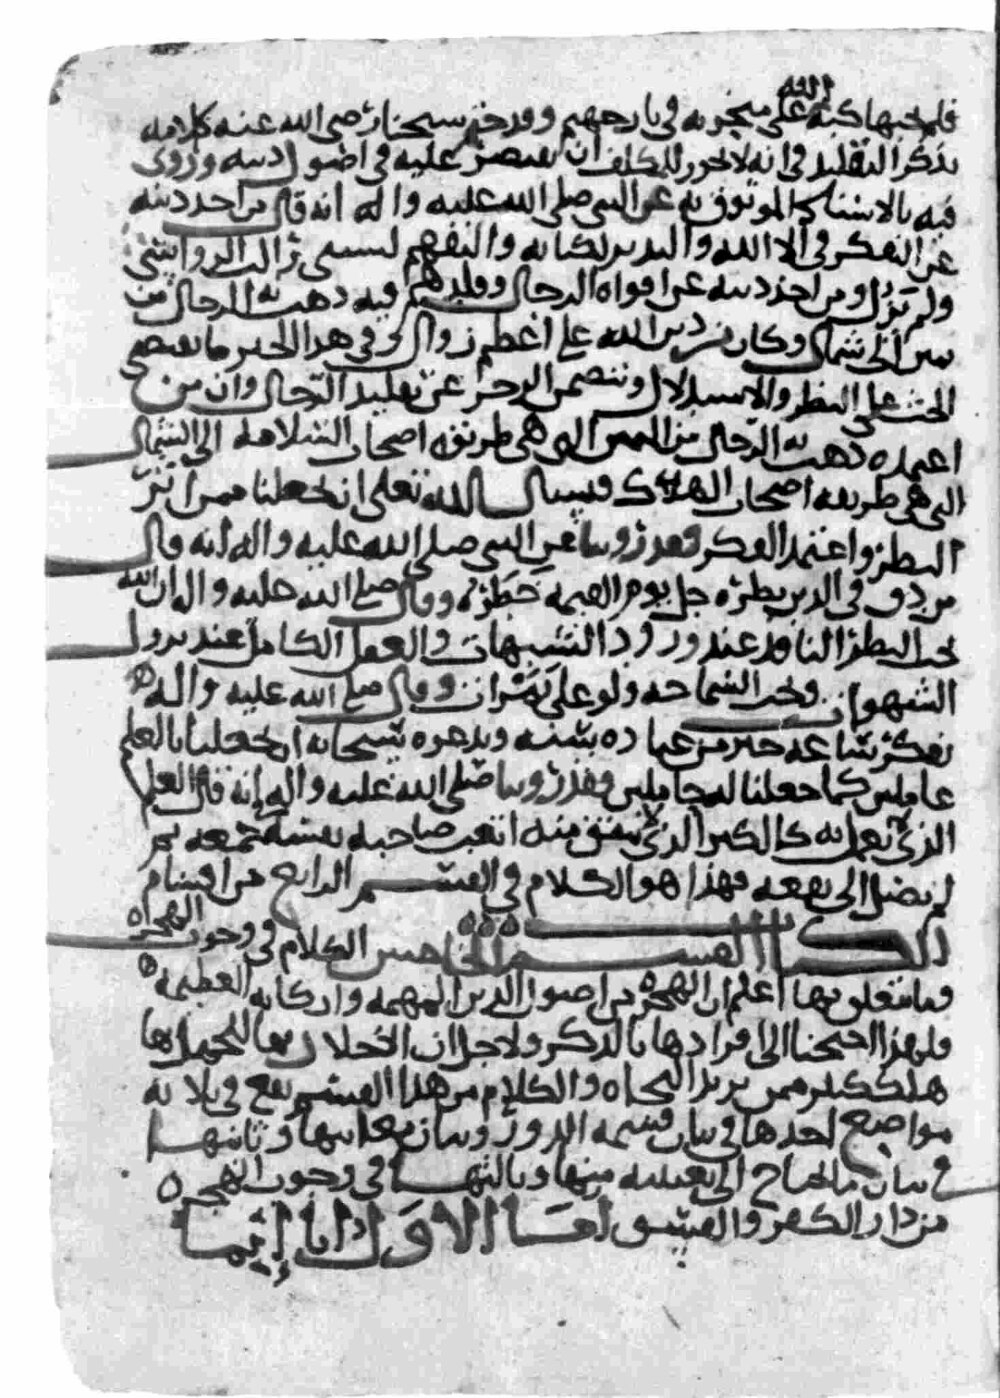 فلم يجبها كبه الله على منخريه في نار جهنم وقد ختم شيخنا رضي الله عنه كلامه
بذكر التقليد في انه لا يجوز للمكلف ان يقتصر عليه في اصول دينه وروى
فيه بالاسناد الموثوق به عن النبي صلى الله عليه واله انه قال من اخذ دينه
عن التفكر في الاء الله والتدبر لكتابه والتفهم لسنتي زالت الرواسي
ولم يزل ومن اخذ دينه عن افواه الرجال وقلدهم فيه ذهبت به الرجال من
يمين الى شمال وكان من دين الله على اعظم زوال وفي هذا الخبر ما يقتضي
الحث على النظر والاستدلال ويتضمن الزجر عن تقليد الرجال وان من
اعتمده ذهبت به الرجال من اليمين التي هي طريقة اصحاب السلامة الى الشمال
التي هي طريقة اصحاب الهلاك فنسال الله تعلى ان يجعلنا ممن اثر
النظر واعتمد الفكر فقد روينا عن النبي صلى الله عليه واله انه قال
من دق في الدين نظره جل يوم القيمة خطره وقال صلى الله عليه واله ان الله
يحب البصر النافذ عند ورود الشبهات والعقل الكامل عند نزول
الشهوات ويحب السماحة ولو على تمرات وقال صلى الله عليه واله
تفكر ساعة خير من عبادة سنة وندعوه سبحانه ان يجعلنا بالعلم
عاملين كما جعلنا له حاملين فقد روينا صلى الله عليه واله انه قال العلم
الذي لا يعمل به كالكنز الذي لا ينفق منه اتعب صاحبه نفسه بجمعه ثم
لم يصل الى نفعه فهذا هو الكلام في القسم الرابع من اقسام
الكتاب القسم الخامس الكلام في وجوب الهجرة
وما يتعلق بها اعلم ان الهجرة من اصول الدين المهمة واركانه العظيمة
فلهذا احتجنا الى افرادها بالذكر ولاجل ان الاخلال بها والجهل بها
هلك كثير ممن يريد النجاة والكلام من هذا القسم يقع في ثلاثة
مواضع احدها في بيان قسمة الدور وبيان معانيها وثانيها
في بيان ما يحتاج الى تعيينه منها وثالثها في وجوب الهجرة
من دار الكفر والفسق اما الاول فانا انما